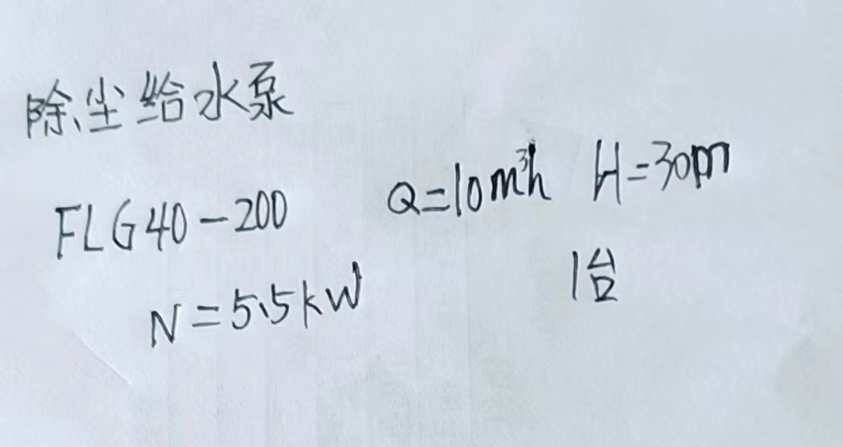 除尘给水泵
FLG40-200 Q=10m³h H=30m
N=5.5kW 1台